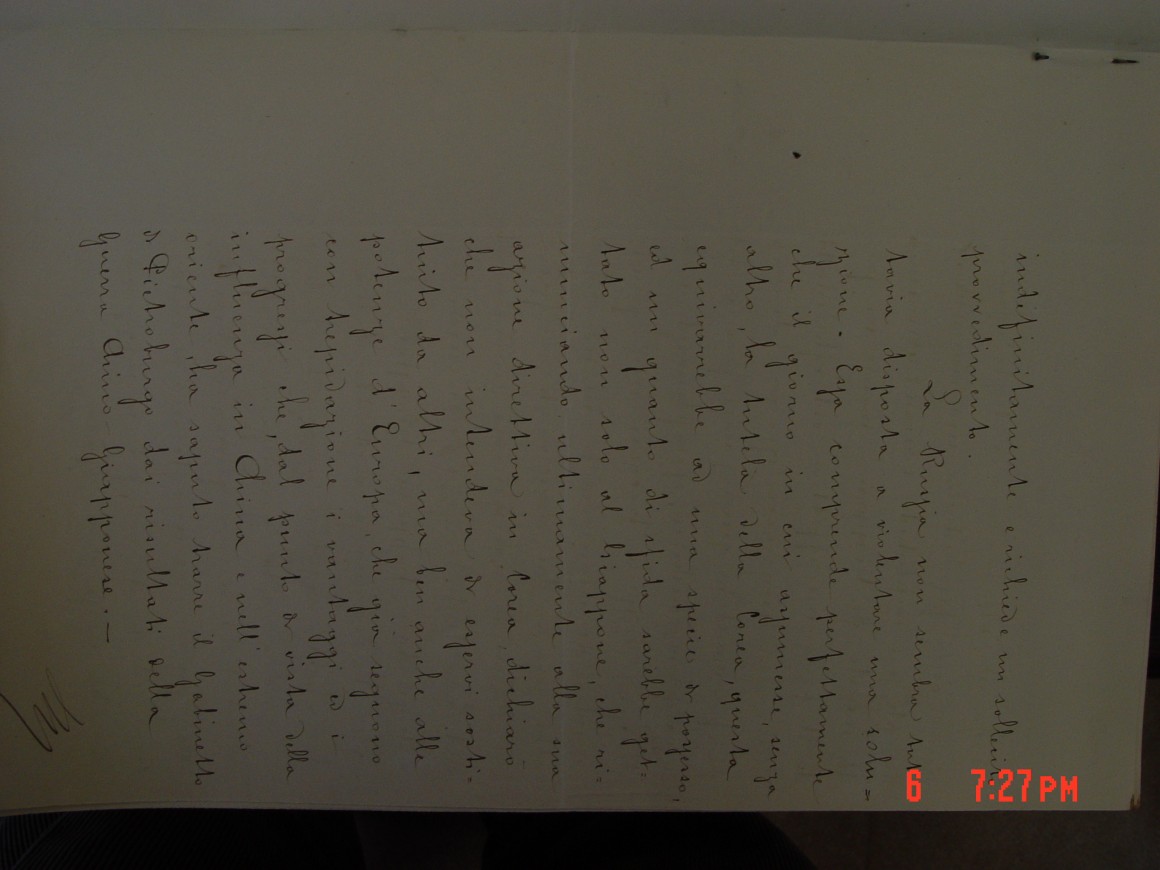 indefinitamente e richiede un sollecito
provvedimento.
La Russia non sembra tut
tavia disposta a violentare una solu=
zione. Essa comprende perfettamente
che il giorno in cui assumesse, senza
altro, la tutela della Corea, questa
equivarrebbe ad una specie di possesso,
ed un guanto di sfida sarebbe get=
tato non solo al Giappone, che ri=
nunciando ultimamente alla sua
azione direttiva in Corea, dichiarò
che non intendeva di esservi sosti=
tuito da altri, ma ben anche alle
potenze d'Europa, che già seguono
con trepidazione i vantaggi ed i
progressi che, dal punto di vista della
influenza in China e nell'estremo
oriente, ha saputo trarre il Gabinetto
di Pietroburgo dai risultati della
guerra Chino-Giapponese. —
6 7:27 PM